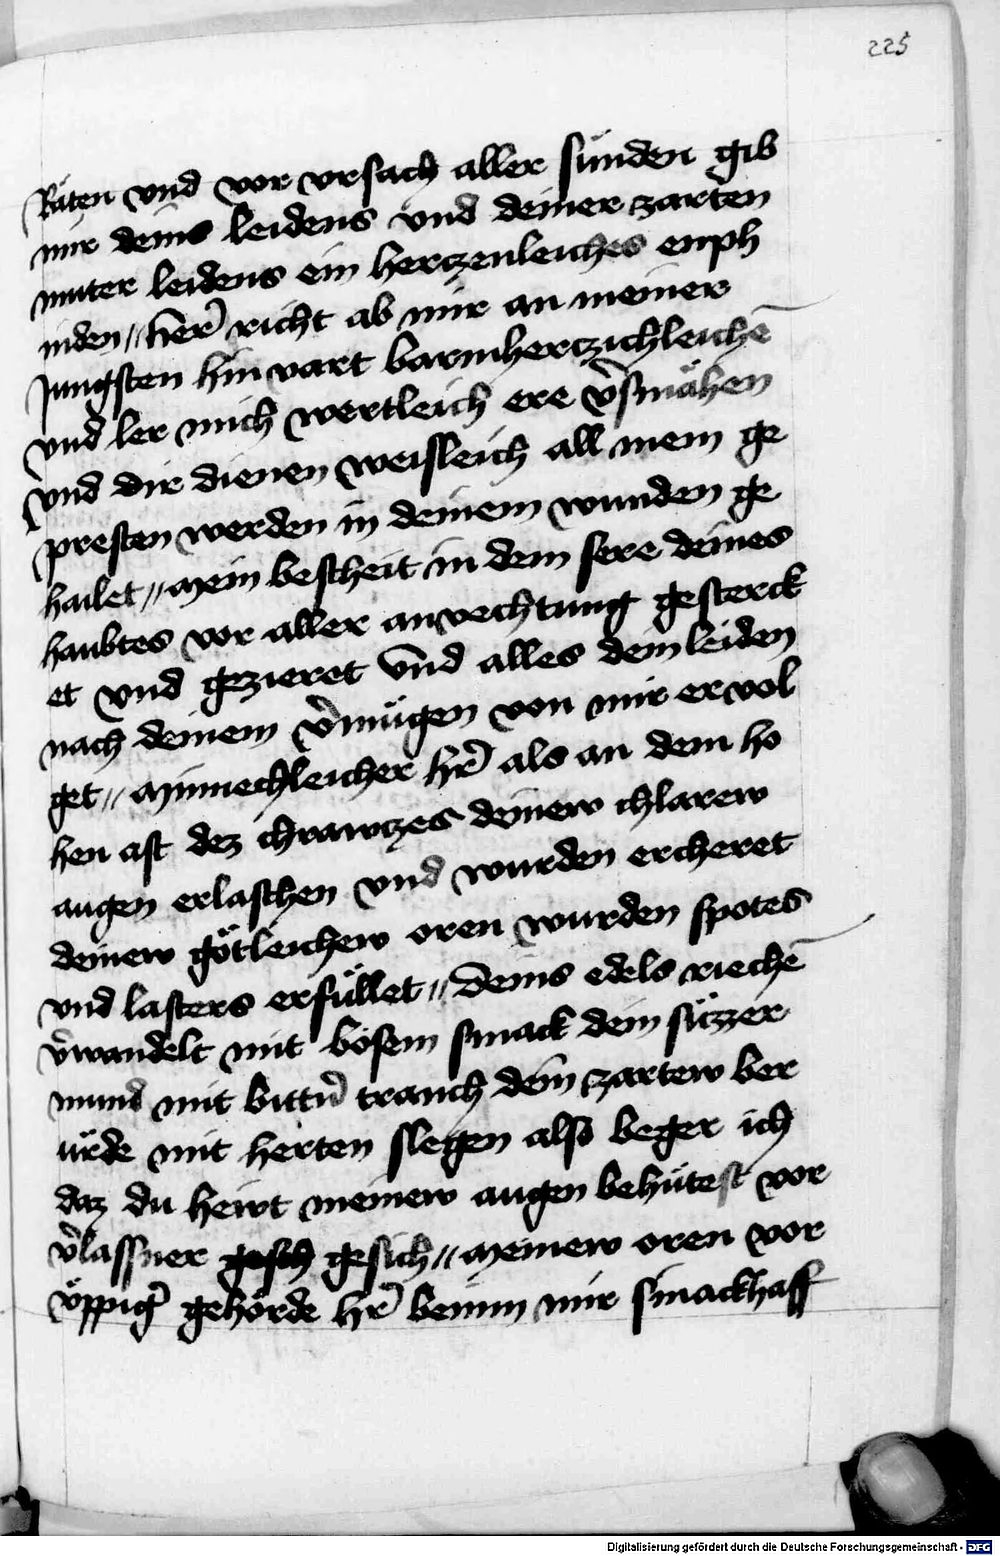 225
Räten vnd vor vrsach aller sünden gib
mir deins leidens vnd deiner zarten
muter leidens ein herczenleiches enph
inden // herr̄ richt ab mir an meiner
Jungsten hin vart barmherczichleichē
vnd ler mich wertleich ere v̄smähen
vnd dir dienen weisleich all mein ge
presten werden in deinem wunden ge
hailet // Mein bescheit in dem sere deines
haubtes vor aller anvechtung gesterck
et vnd gezieret vnd alles dein leiden
nach deinem v̄mügen von mir ervol
get // Minnechleicher hr̄ als an dem ho
hen ast dez chrawczes deinew chlarew
augen erlaschen vnd wurden ercheret
deinew götleichew oren wurden spotes
vnd lasters erfüllet // Deins edels riechē
v̄wandelt mit bösem smack dein süzzer
mund mit bittn̄ tranch dein zartew ber
ürde mit herten slegen also beger ich
daz du hewt meinew augen behütest vor
v̄lassner gesch gesich // Meinew oren vor
vppiḡ gehörde hr̄ benim mir smackhaff
Digitalisierung gefördert durch die Deutsche Forschungsgemeinschaft - DFG